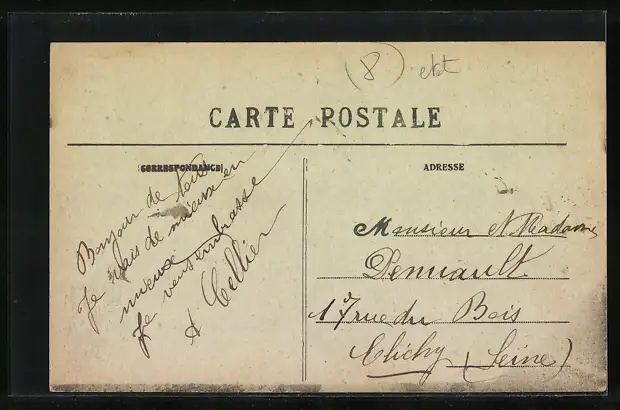 (8) etat
CARTE POSTALE
CORRESPONDANCE
Bonjour de tous
Je vais de mieux en
mieux
Je vous embrasse
Tellier
ADRESSE
Monsieur et Madame
Denuault
17 rue du Bois
Clichy (Seine)